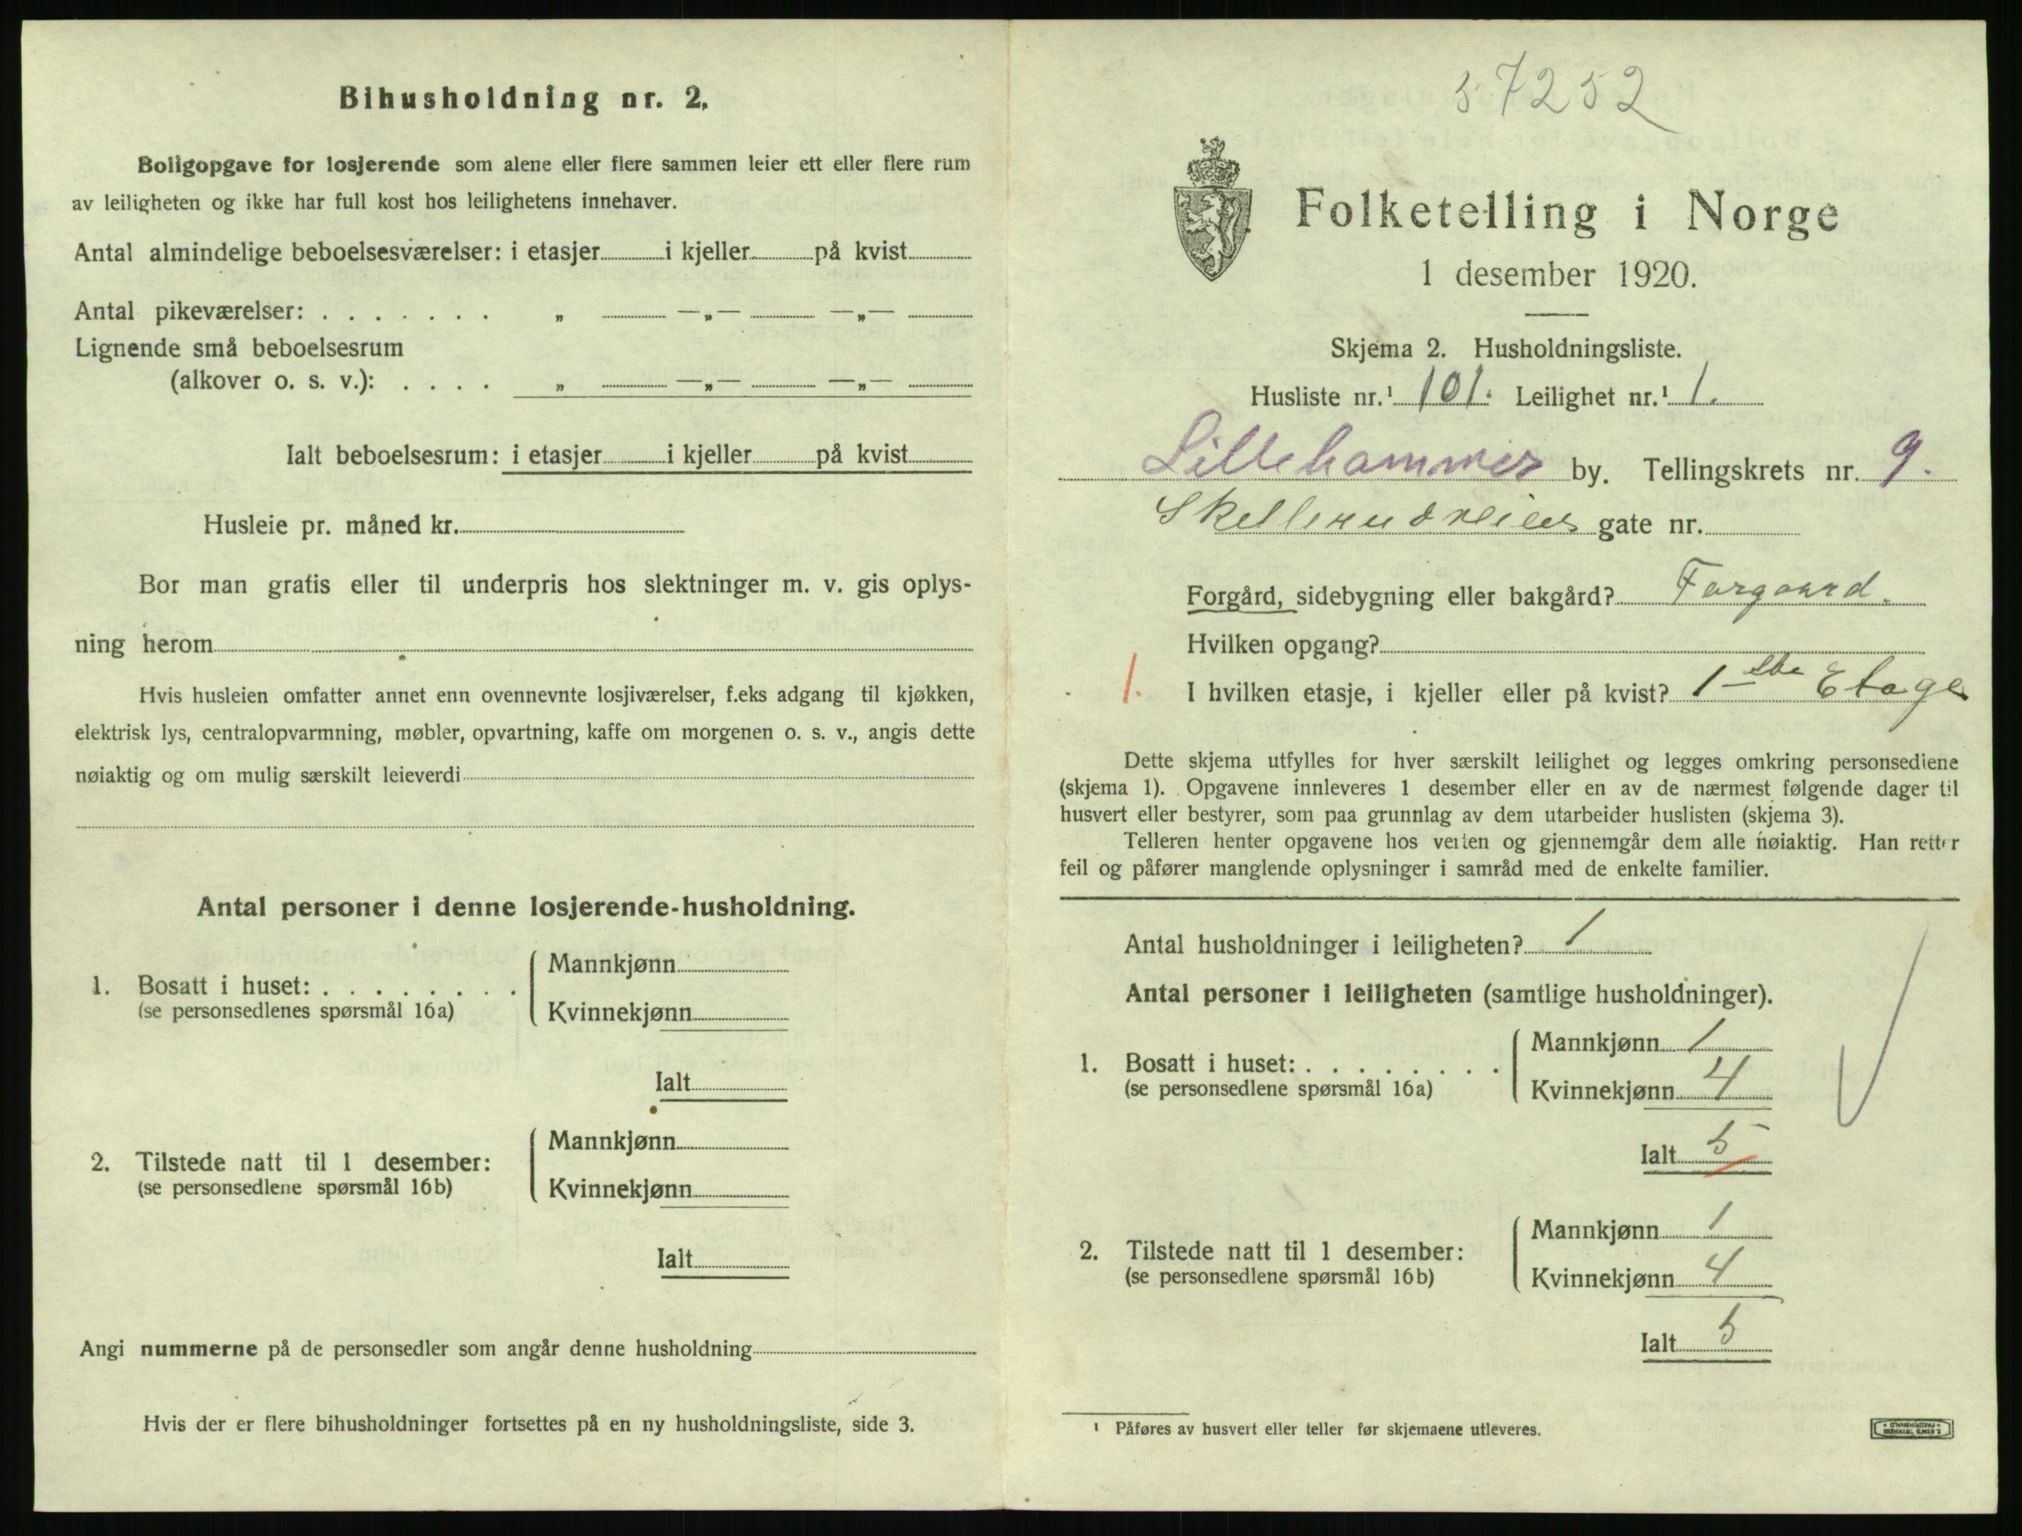 Bihusholdning nr. 2.
Boligopgave for losjerende som alene eller flere sammen leier ett eller flere rum
av leiligheten og ikke har full kost hos leilighetens innehaver.
Antal almindelige beboelsesværelser: i etasjer i kjeller på kvist
Antal pikeværelser: . . . . . . . „ —„— —„—
Lignende små beboelsesrum
(alkover o. s. v.): . . . . „ —„— —„—
Ialt beboelsesrum: i etasjer i kjeller på kvist
Husleie pr. måned kr.
Bor man gratis eller til underpris hos slektninger m. v. gis oplys-
ning herom
Hvis husleien omfatter annet enn ovennevnte losjiværelser, f.eks adgang til kjøkken,
elektrisk lys, centralopvarmning, møbler, opvartning, kaffe om morgenen o. s. v., angis dette
nøiaktig og om mulig særskilt leieverdi
Antal personer i denne losjerende-husholdning.
1. Bosatt i huset: . . . . . . . .
(se personsedlenes spørsmål 16a)
Mannkjønn
Kvinnekjønn
Ialt
2. Tilstede natt til 1 desember:
(se personsedlene spørsmål 16b)
Mannkjønn
Kvinnekjønn
Ialt
Angi nummerne på de personsedler som angår denne husholdning
Hvis der er flere bihusholdninger fortsettes på en ny husholdningsliste, side 3.
57252
Folketelling i Norge
1 desember 1920.
Skjema 2. Husholdningsliste.
Husliste nr.¹ 101. Leilighet nr.¹ 1.
Lillehammer by. Tellingskrets nr. 9.
gate nr.
Forgård, sidebygning eller bakgård? Forgaard.
Hvilken opgang?
1. I hvilken etasje, i kjeller eller på kvist? 1ste Etage
Dette skjema utfylles for hver særskilt leilighet og legges omkring personsedlene
(skjema 1). Opgavene innleveres 1 desember eller en av de nærmest følgende dager til
husvert eller bestyrer, som paa grunnlag av dem utarbeider huslisten (skjema 3).
Telleren henter opgavene hos verten og gjennemgår dem alle nøiaktig. Han retter
feil og påfører manglende oplysninger i samråd med de enkelte familier.
Antal husholdninger i leiligheten? 1
Antal personer i leiligheten (samtlige husholdninger).
1. Bosatt i huset: . . . . . . . .
(se personsedlene spørsmål 16a)
Mannkjønn 1
Kvinnekjønn 4
Ialt 5
2. Tilstede natt til 1 desember:
(se personsedlene spørsmål 16b)
Mannkjønn 1
Kvinnekjønn 4
Ialt 5
¹ Påføres av husvert eller teller før skjemaene utleveres.